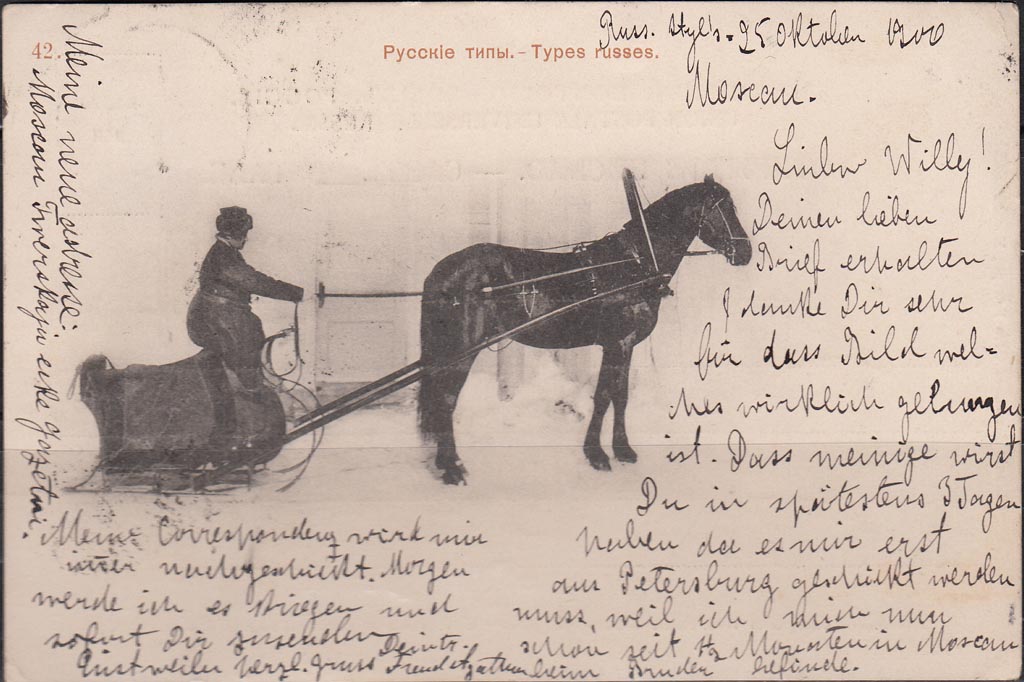 42.
Русскіе типы. - Types russes.
Russ. Styl's - 25 Oktober 1900
Moscau.
Lieber Willy!
Deinen lieben
Brief erhalten
I danke Dir sehr
für dass Bild wel=
ches wirklich gelungen
ist. Dass meinige wirst
Du in spätestens 3 Tagen
haben da es mir erst
aus Petersburg geschickt werden
muss, weil ich mich nun
schon seit Monaten in Moscau
beim Bruder befinde.
Meine Correspondenz wird mir
immer nachgeschickt. Morgen
werde ich es kriegen und
sofort Dir zusenden
Einstweilen herzl. Gruss Freund
Meine neue adresse:
Moscau Twerskaja ecke Gazetni.